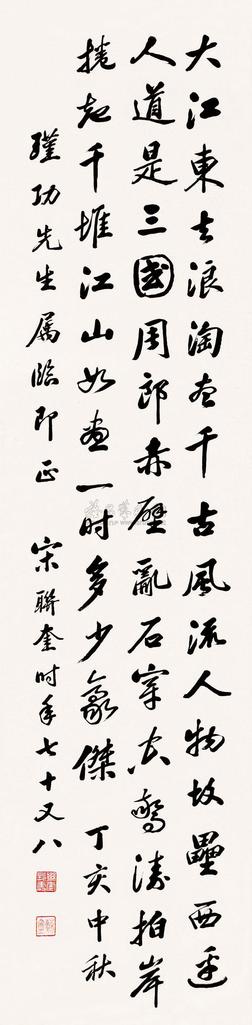 大江東去浪淘盡千古風流人物故壘西邊
人道是三國周郎赤壁亂石穿空驚濤拍岸
捲起千堆江山如畫一時多少豪傑 丁亥中秋
瑾功先生屬臨即正 宋聯奎時年七十又八